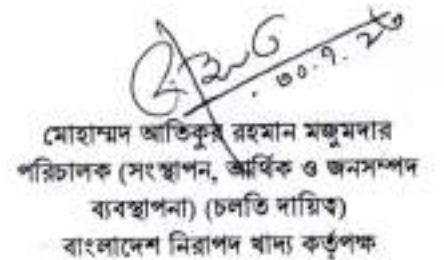 ৩০.৭.২৩
মোহাম্মদ আতিকুর রহমান মজুমদার
পরিচালক (সংস্থাপন, আর্থিক ও জনসম্পদ
ব্যবস্থাপনা) (চলতি দায়িত্ব)
বাংলাদেশ নিরাপদ খাদ্য কর্তৃপক্ষ